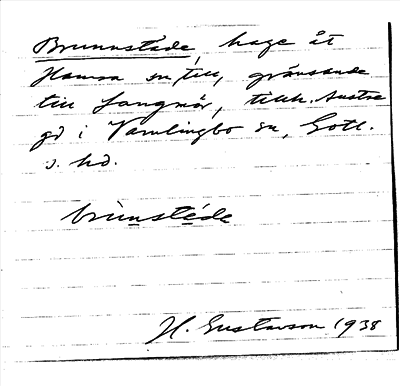 Brunnstäde, hage åt
Hamra sn till, gränsande
till Langmör, tillh. Austre
gd i Vamlingbo sn, Gotl.
s. hd.
brùnstéde
H. Gustavson 1938